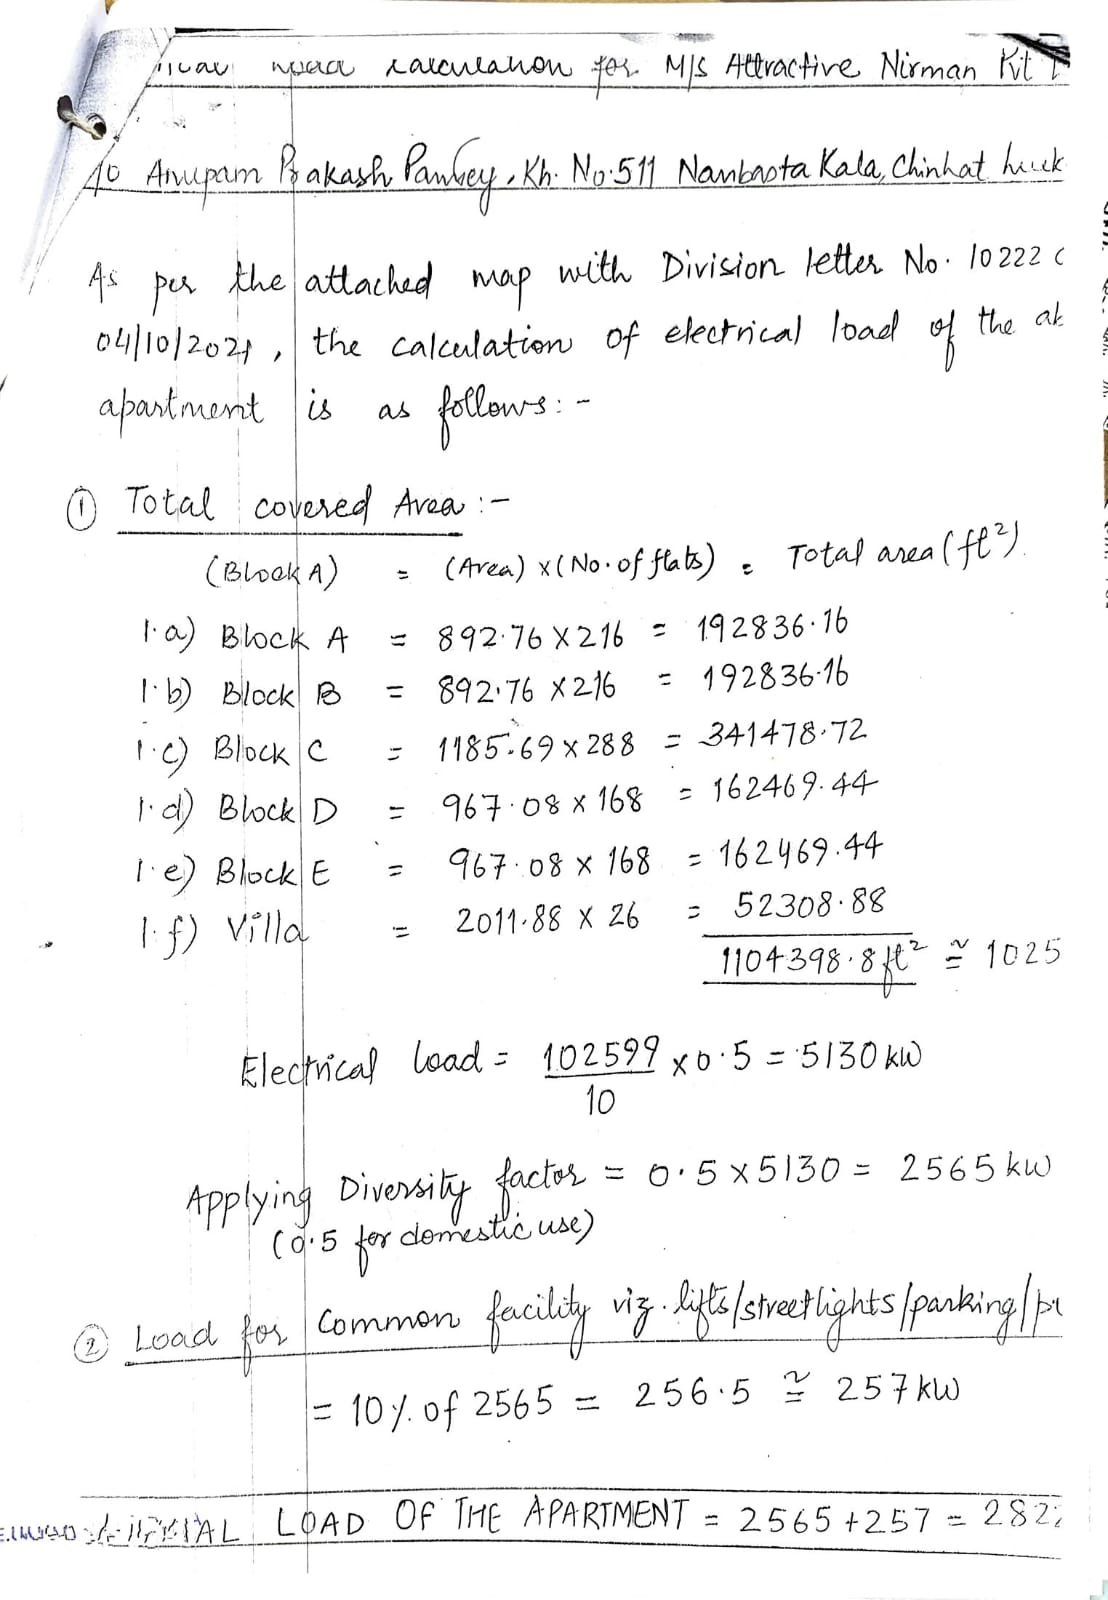 calculation for M/S Attractive Nirman Pvt
Anupam Prakash Pandey, Kh. No. 511 Nanbasta Kala, Chinhat
As per the attached map with Division letter No. 10222
04/10/2021, the calculation of electrical load of the ab
apartment is as follows:-
① Total covered Area:-
(Block A) = (Area) x (No. of flats) = Total area (ft²).
1.a) Block A = 892.76 X 216 = 192836.16
1.b) Block B = 892.76 X 216 = 192836.16
1.c) Block C = 1185.69 x 288 = 341478.72
1.d) Block D = 967.08 x 168 = 162469.44
1.e) Block E = 967.08 x 168 = 162469.44
1.f) Villa = 2011.88 X 26 = 52308.88
1104398.8 ft² ≅ 1025
Electrical load = 102599/10 x 0.5 = 5130 kW
Applying Diversity factor = 0.5 x 5130 = 2565 kW
(0.5 for domestic use)
② Load for Common facility viz. lifts/streetlights/parking/
= 10% of 2565 = 256.5 ≅ 257 kW
LOAD OF THE APARTMENT = 2565 + 257 = 2822